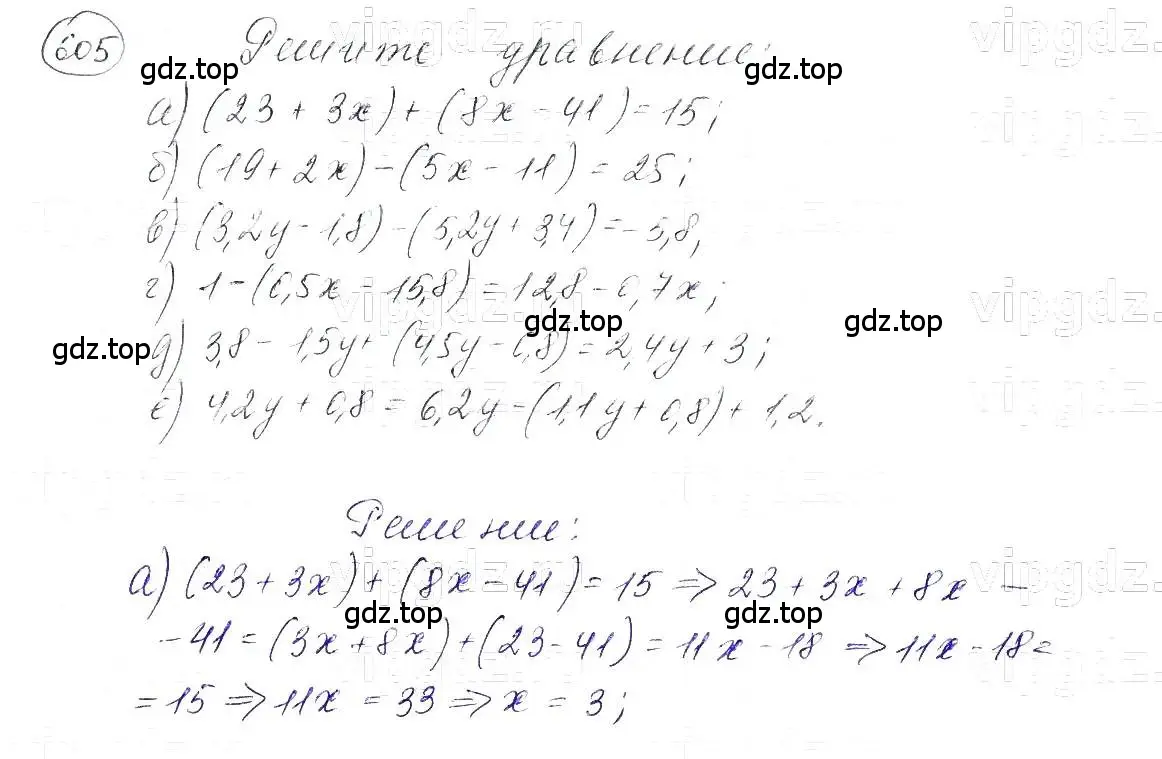 605 Решите уравнение:
а) (23 + 3x) + (8x - 41) = 15;
б) (19 + 2x) - (5x - 11) = 25;
в) (3,2y - 1,8) - (5,2y + 3,4) = -5,8;
г) 1 - (0,5x - 15,8) = 12,8 - 0,7x;
д) 3,8 - 1,5y + (4,5y - 0,8) = 2,4y + 3;
е) 4,2y + 0,8 = 6,2y - (1,1y + 0,8) + 1,2.
Решение:
а) (23 + 3x) + (8x - 41) = 15 => 23 + 3x + 8x -
- 41 = (3x + 8x) + (23 - 41) = 11x - 18 => 11x - 18 =
= 15 => 11x = 33 => x = 3;
gdz.top
gdz.top
gdz.top
gdz.top
gdz.top
gdz.top
gdz.top